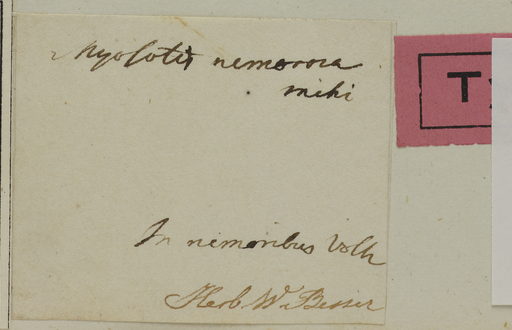 Myosotis nemorosa
mihi
In nemoribus Volh
Herb W. Besser
TY